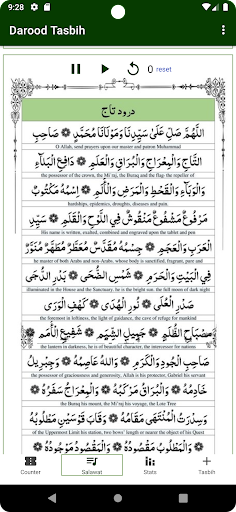 9:28
Darood Tasbih
0 reset
درود تاج
اَللّٰهُمَّ صَلِّ عَلٰى سَيِّدِنَا وَمَوْلَانَا مُحَمَّدٍ ۞ صَاحِبِ
O Allah, send prayers upon our master and patron Muhammad
التَّاجِ وَالْمِعْرَاجِ وَالْبُرَاقِ وَالْعَلَمِ ۞ دَافِعِ الْبَلَآءِ
the possessor of the crown, the Mi'raj, the Buraq and the flag- the repeller of
وَالْوَبَآءِ وَالْقَحْطِ وَالْمَرَضِ وَالْأَلَمِ ۞ اِسْمُهُ مَكْتُوْبٌ
hardships, epidemics, droughts, diseases and pain.
مَرْفُوْعٌ مَشْفُوْعٌ مَنْقُوْشٌ فِي اللَّوْحِ وَالْقَلَمِ ۞ سَيِّدِ
His name is written, exalted, combined and engraved upon the tablet and pen
الْعَرَبِ وَالْعَجَمِ ۞ جِسْمُهُ مُقَدَّسٌ مُعَطَّرٌ مُطَهَّرٌ مُنَوَّرٌ
he master of both Arabs and non-Arabs, whose body is sanctified, fragrant, pure and
فِي الْبَيْتِ وَالْحَرَمِ ۞ شَمْسِ الضُّحٰى ۞ بَدْرِ الدُّجٰى
illuminated in the House and the Sanctuary, he is the bright sun, the full moon of dark night
صَدْرِ الْعُلٰى ۞ نُوْرِ الْهُدٰى ۞ كَهْفِ الْوَرٰى
the foremost in loftiness, the light of guidance, the cave of refuge for mankind
مِصْبَاحِ الظُّلَمِ ۞ جَمِيْلِ الشِّيَمِ ۞ شَفِيْعِ الْأُمَمِ
the lantern in darkness, he is of beautiful character, the intercessor for nations
صَاحِبِ الْجُوْدِ وَالْكَرَمِ ۞ وَاللهُ عَاصِمُهُ ۞ وَجِبْرِيْلُ
the possessor of graciousness and generosity, Allah is his protector, Gabriel his servant
خَادِمُهُ ۞ وَالْبُرَاقُ مَرْكَبُهُ ۞ وَالْمِعْرَاجُ سَفَرُهُ ۞
the Buraq his mount, the Mi'raj his voyage, the Lote Tree
وَسِدْرَةُ الْمُنْتَهٰى مَقَامُهُ ۞ وَقَابَ قَوْسَيْنِ مَطْلُوْبُهُ
of the Uppermost Limit his station, two bows' length or nearer the object of his Quest
۞ وَالْمَطْلُوْبُ مَقْصُوْدُهُ ۞ وَالْمَقْصُوْدُ مَوْجُوْدُهُ ۞
Counter
Salawat
Stats
Tasbih